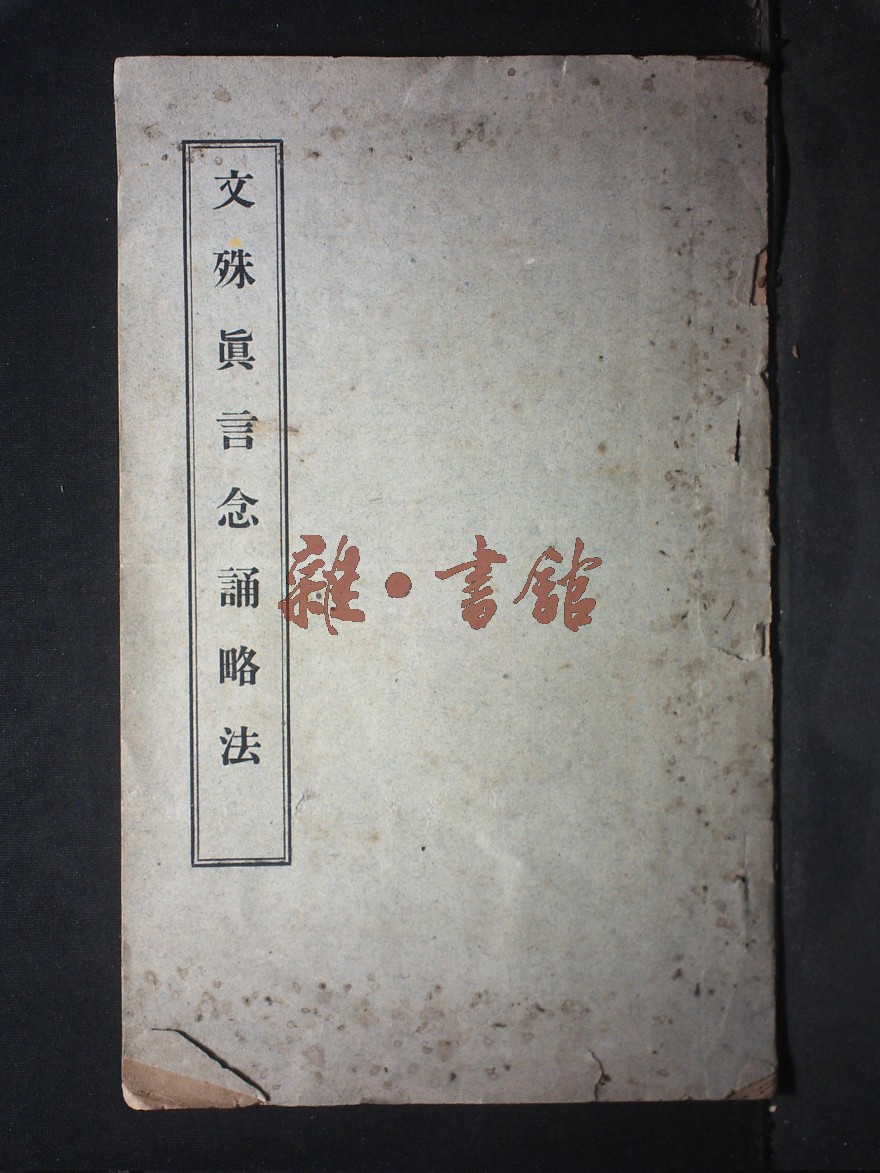 文殊眞言念誦略法
雜·書館